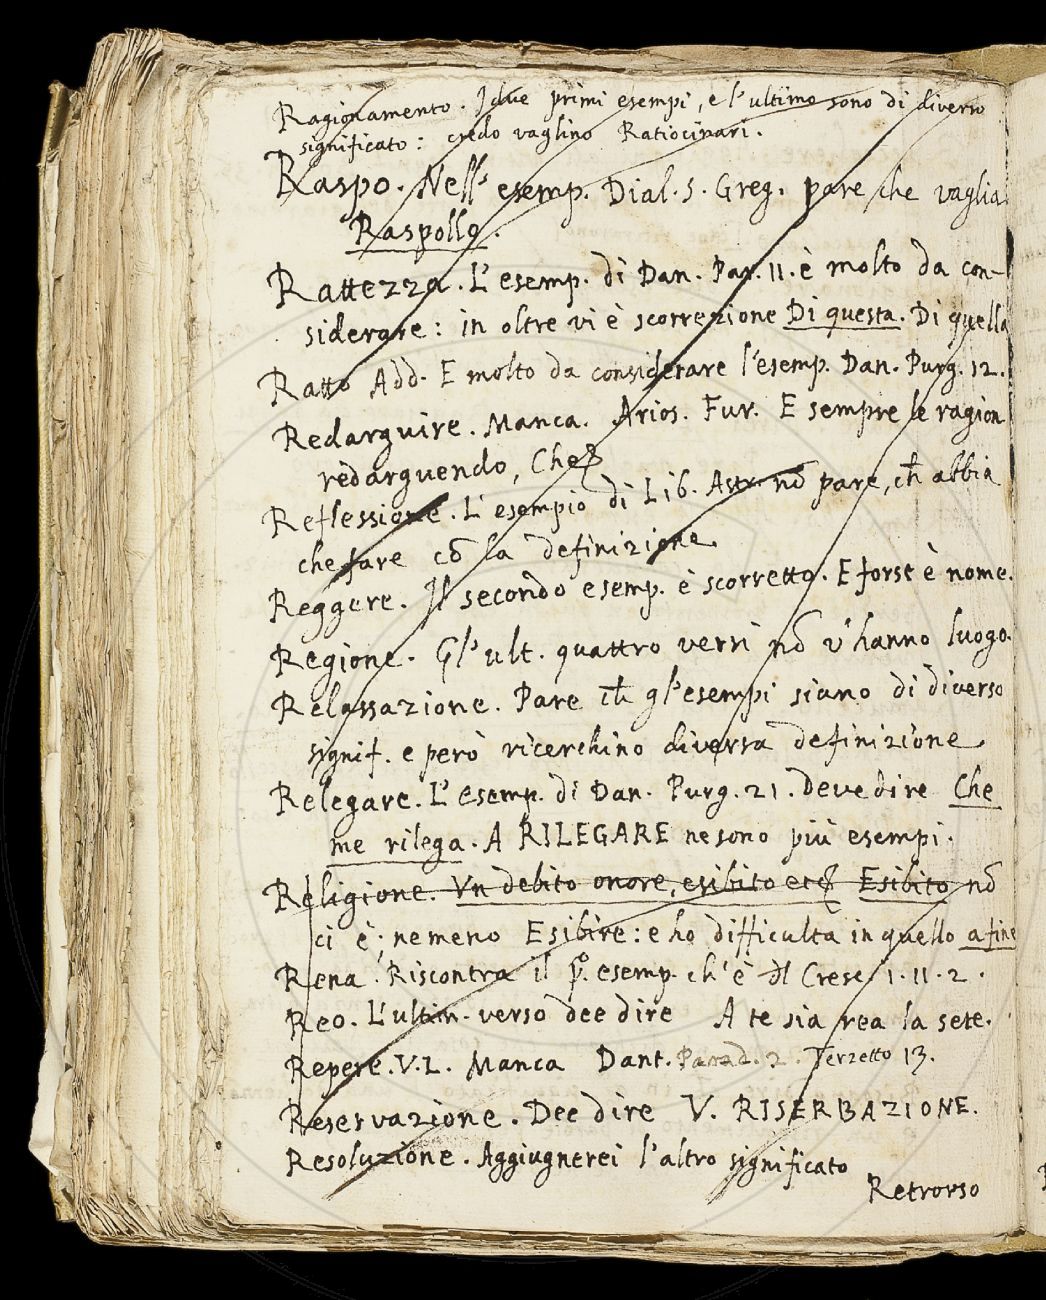 Ragionamento. I due primi esempi, e l'ultimo sono di diverso
significato: credo vaglino Ratiocinari.
Raspo. Nell' esemp. Dial. S. Greg. pare che vaglia
Raspollo.
Rattezza. L'esemp. di Dan. Par. 11. è molto da con-
siderare: in oltre vi è scorrezione Di questa. Di quella
Ratto Add. E molto da considerare l'esemp. Dan. Purg. 12.
Redarguire. Manca. Arios. Fur. E sempre le ragion
redarguendo, Che
Reflessione. L'esempio di Lib. Astr. nõ pare, ch̃ abbia
che fare cõ la definizione.
Reggere. Il secondo esemp. è scorretto. E forse è nome.
Regione. Gl'ult. quattro versi nõ v'hanno luogo.
Relassazione. Pare ch̃ gl'esempi siano di diverso
signif. e però ricerchino diversa definizione.
Relegare. L'esemp. di Dan. Purg. 21. Deve dire Che
me rilega. A RILEGARE ne sono più esempi.
Religione. Vn debito onore, esibito etc Esibito nõ
ci è; nemeno Esibire: e ho difficultà in quello a fine
Rena. Riscontra il p.º esemp. ch'è di Cresc. 1. 11. 2.
Reo. L'ultim. verso dee dire A te sia rea la sete.
Repere. V. L. Manca Dant. Parad. 2. Terzetto 13.
Reservazione. Dee dire V. RISERBAZIONE.
Resoluzione. Aggiugnerei l'altro significato
Retrorso